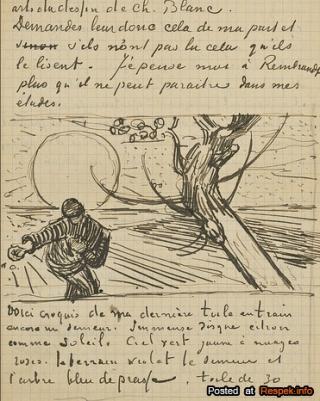 arts du dessin de Ch. Blanc.
Demandes leur donc cela de ma part et
sinon s'ils n'ont pas lu cela qu'ils
le lisent. Je pense moi à Rembrandt
plus qu'il ne peut paraitre dans mes
études.
Voici croquis de ma dernière toile en train
encore un semeur. Immense disque citron
comme soleil. Ciel vert jaune à nuages
roses. le terrain violet le semeur et
l'arbre bleu de prusse. toile de 30
Posted at Respek.info